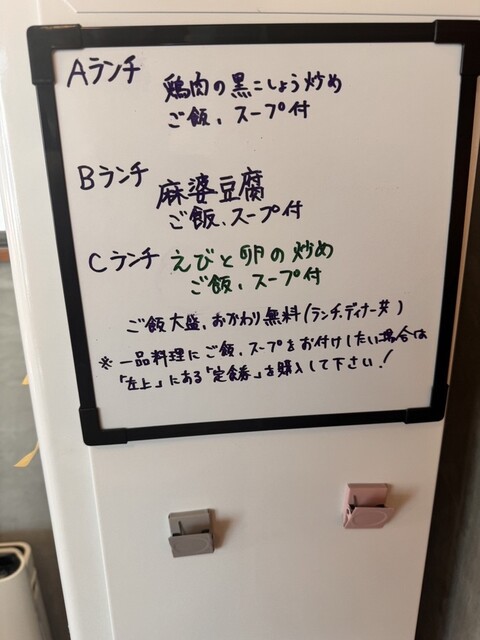 Aランチ 鶏肉の黒こしょう炒め
ご飯、スープ付
Bランチ 麻婆豆腐
ご飯、スープ付
Cランチ えびと卵の炒め
ご飯、スープ付
ご飯大盛、おかわり無料(ランチ、ディナー共)
※一品料理にご飯、スープをお付けしたい場合は
「左上」にある「定食券」を購入して下さい!